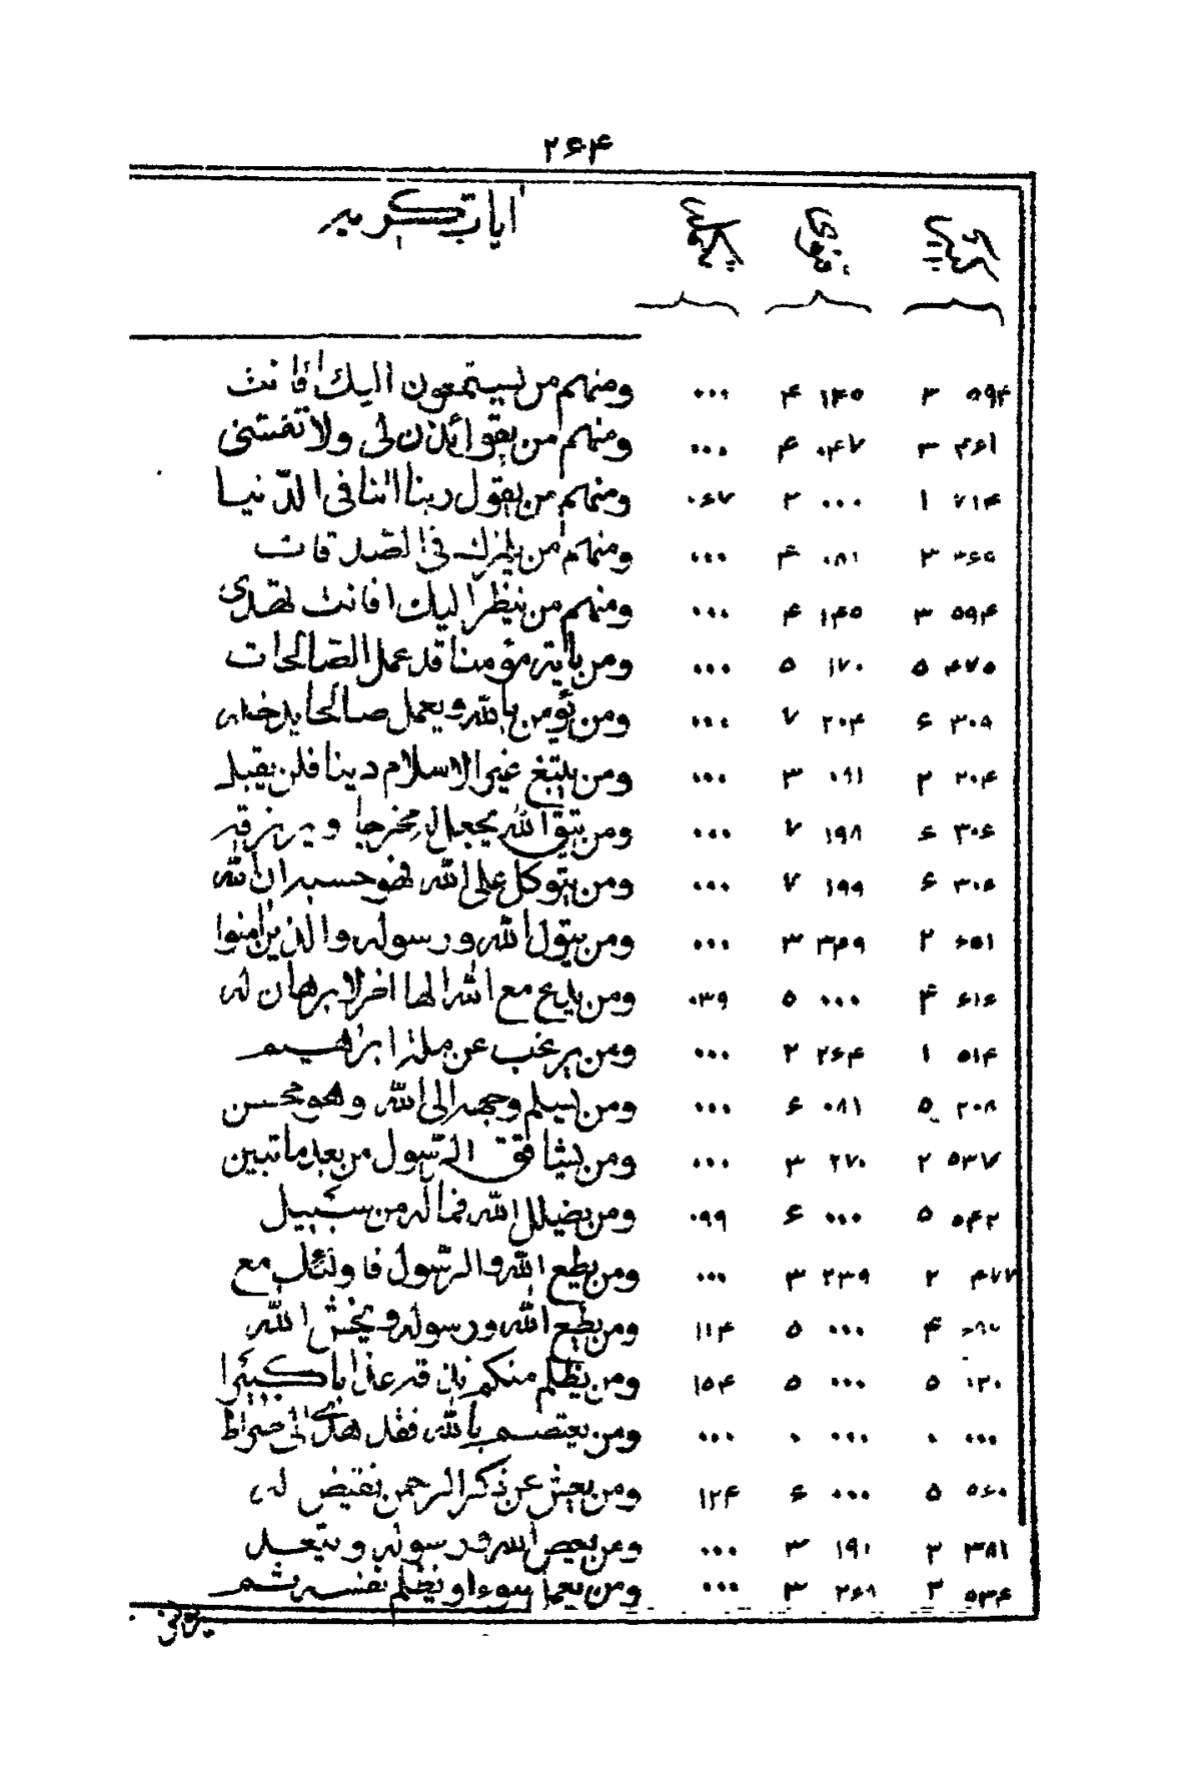 ۲۶۴
آیات کریمه
۵۹۴ ۳ ۱۴۵ ۴ ۰۰۰ ومنهم من یستمعون الیك افانت
۴۶۱ ۳ ۰۴۷ ۴ ۰۰۰ ومنهم من یقول ائذن لی ولا تفتنی
۷۱۴ ۱ ۰۰۰ ۲ ۰۶۷ ومنهم من یقول ربنا اتنا فی الدّنیا
۳ ۰۸۱ ۴ ۰۰۰ ومنهم من یلمزك فی الصّدقات
۵۹۴ ۳ ۱۴۵ ۴ ۰۰۰ ومنهم من ینظر الیك افانت تهدی
۴۷۵ ۵ ۱۷۰ ۵ ۰۰۰ ومن یاته مؤمنا قد عمل الصّالحات
۳۰۸ ۶ ۲۰۴ ۷ ۰۰۰ ومن یؤمن بالله ویعمل صالحا یدخله
۲۰۴ ۲ ۰۹۱ ۳ ۰۰۰ ومن یبتغ غیر الاسلام دینا فلن یقبل
۳۰۶ ۶ ۱۹۸ ۷ ۰۰۰ ومن یتق الله یجعل له مخرجا ویرزقه
۳۰۶ ۶ ۱۹۹ ۷ ۰۰۰ ومن یتوكل علی الله فهو حسبه ان الله
۶۵۱ ۲ ۳۴۹ ۳ ۰۰۰ ومن یتول الله ورسوله والذین امنوا
۶۱۶ ۴ ۰۰۰ ۵ ۰۳۹ ومن یدع مع الله الها اخر لا برهان له
۵۱۴ ۱ ۲۶۴ ۲ ۰۰۰ ومن یرغب عن ملة ابراهیم
۲۰۸ ۵ ۰۸۱ ۶ ۰۰۰ ومن یسلم وجهه الی الله وهو محسن
۵۳۷ ۲ ۲۷۰ ۳ ۰۰۰ ومن یشاقق الرّسول من بعد ما تبین
۵۴۲ ۵ ۰۰۰ ۶ ۰۹۹ ومن یضلل الله فما له من سبیل
۴۷۷ ۲ ۲۳۹ ۳ ۰۰۰ ومن یطع الله والرّسول فاولئك مع
۴ ۰۰۰ ۵ ۱۱۴ ومن یطع الله ورسوله ویخش الله
۰۲۰ ۵ ۰۰۰ ۵ ۱۵۴ ومن یظلم منكم نذقه عذابا كبیرا
۰۰۰ ۰ ۰۰۰ ۰ ۰۰۰ ومن یعتصم بالله فقد هدی الی صراط
۵۶۰ ۵ ۰۰۰ ۶ ۱۲۴ ومن یعش عن ذكر الرحمن نقیض له
۳۸۱ ۲ ۱۹۰ ۳ ۰۰۰ ومن یعص الله ورسوله ویتعد
۵۳۶ ۲ ۲۶۹ ۳ ۰۰۰ ومن یعمل سوءا او یظلم نفسه ثم